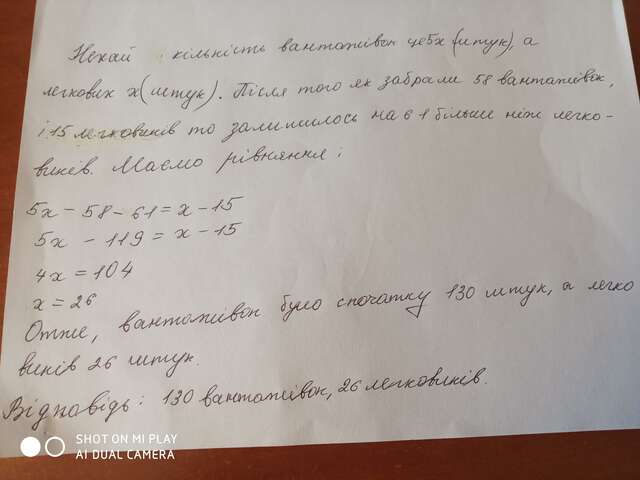 Нехай кількість вантажівок це 5х (штук), а
легкових х (штук). Після того як забрали 58 вантажівок,
і 15 легковиків то залишилось на 61 більше ніж легко-
виків. Маємо рівняння:
5х - 58 - 61 = х - 15
5х - 119 = х - 15
4х = 104
х = 26
Отже, вантажівок було спочатку 130 штук, а легко
виків 26 штук.
Відповідь: 130 вантажівок, 26 легковиків.
SHOT ON MI PLAY
AI DUAL CAMERA